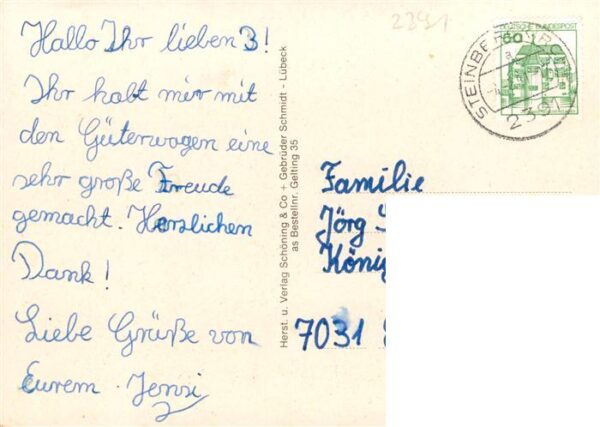 Hallo Ihr lieben 3!
Ihr habt mir mit
den Güterwagen eine
sehr große Freude
gemacht. Herzlichen
Dank!
Liebe Grüße von
Eurem
Herst. u. Verlag Schöning & Co + Gebrüder Schmidt - Lübeck
as Bestellnr. Gelting 35
2391
DEUTSCHE BUNDESPOST
60
2391
Familie
Jörg
König
7031